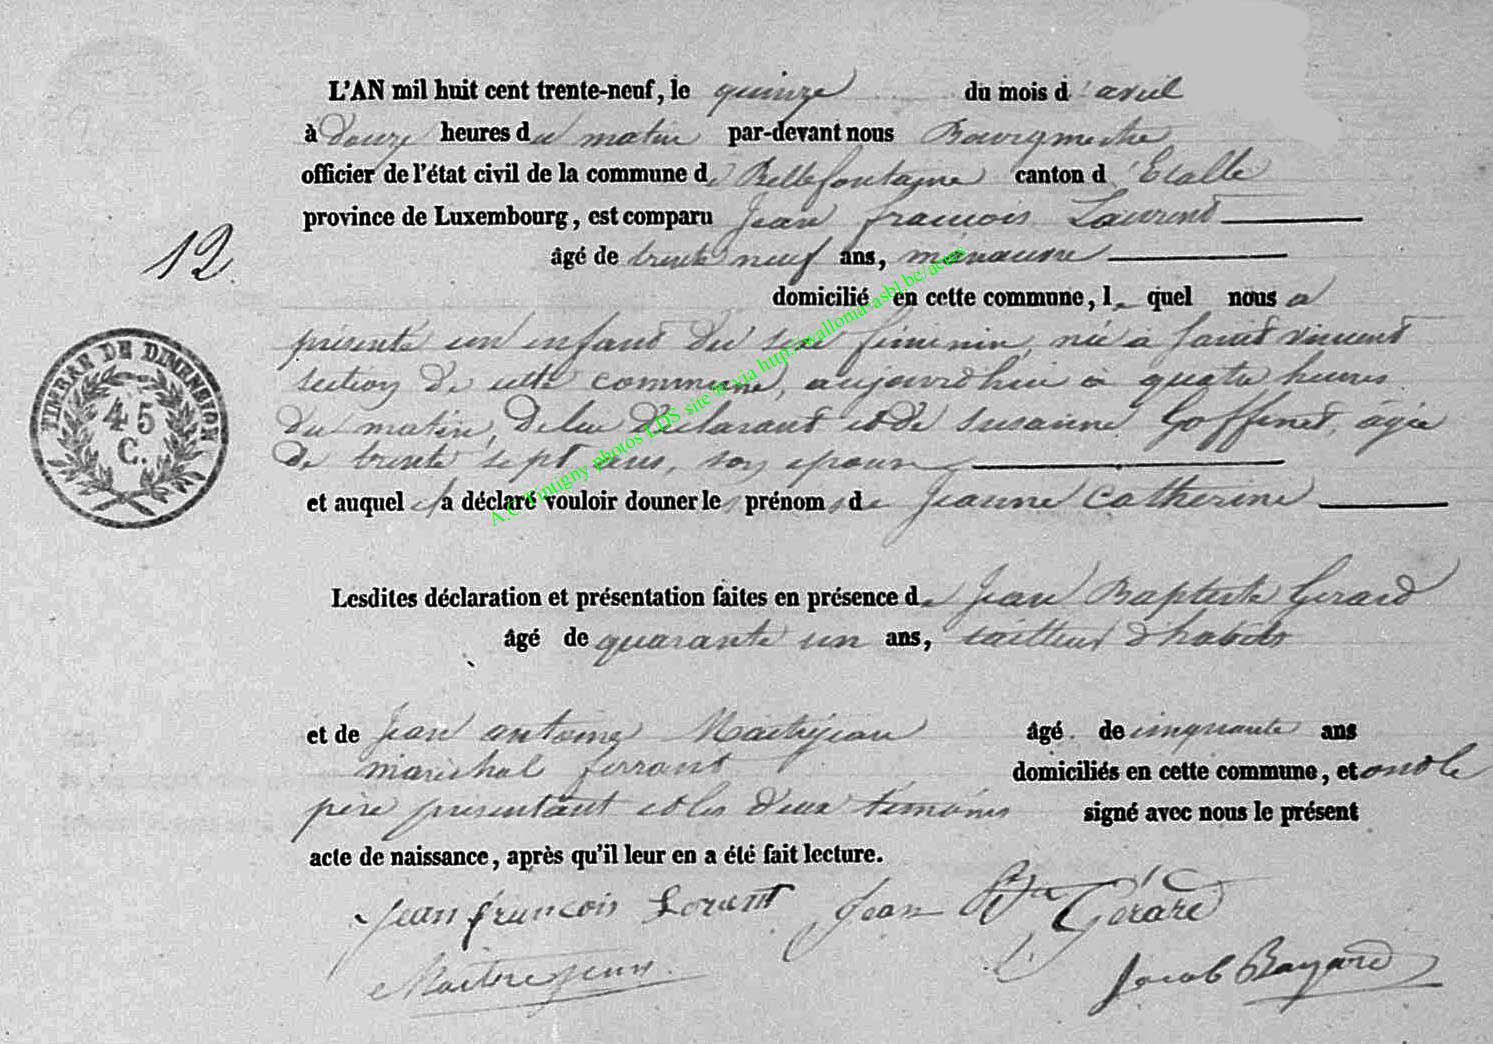 L'AN mil huit cent trente-neuf, le quinze du mois d'avril
à douze heures du matin par-devant nous Bourgmestre
officier de l'état civil de la commune de Bellefontaine canton d'Etalle
province de Luxembourg, est comparu Jean françois Laurent
12
âgé de trente neuf ans, manœuvre
domicilié en cette commune, le quel nous a
présenté un enfant du sexe féminin, née à Saint vincent
section de cette commune, aujourd'hui à quatre heures
du matin, de lui déclarant et de Susanne Goffinet, agée
de trente sept ans, son epouse
et auquel il a déclaré vouloir donner les prénoms de Jeanne Catherine
TIMBRE DE DIMENSION
45
C.
A.C. Tintigny photos LDS site & via http://wallonia-asbl.be/actes
Lesdites déclaration et présentation faites en présence de Jean Baptiste Gerard
âgé de quarante un ans, tailleur d'habits
et de Jean antoine Maitrejean âgé de cinquante ans
maréchal ferrant domiciliés en cette commune, et ont le
père présentant et les deux témoins signé avec nous le présent
acte de naissance, après qu'il leur en a été fait lecture.
Jean françois Lorent Jean Bte Gérard
Maitrejean Jacob Bayard